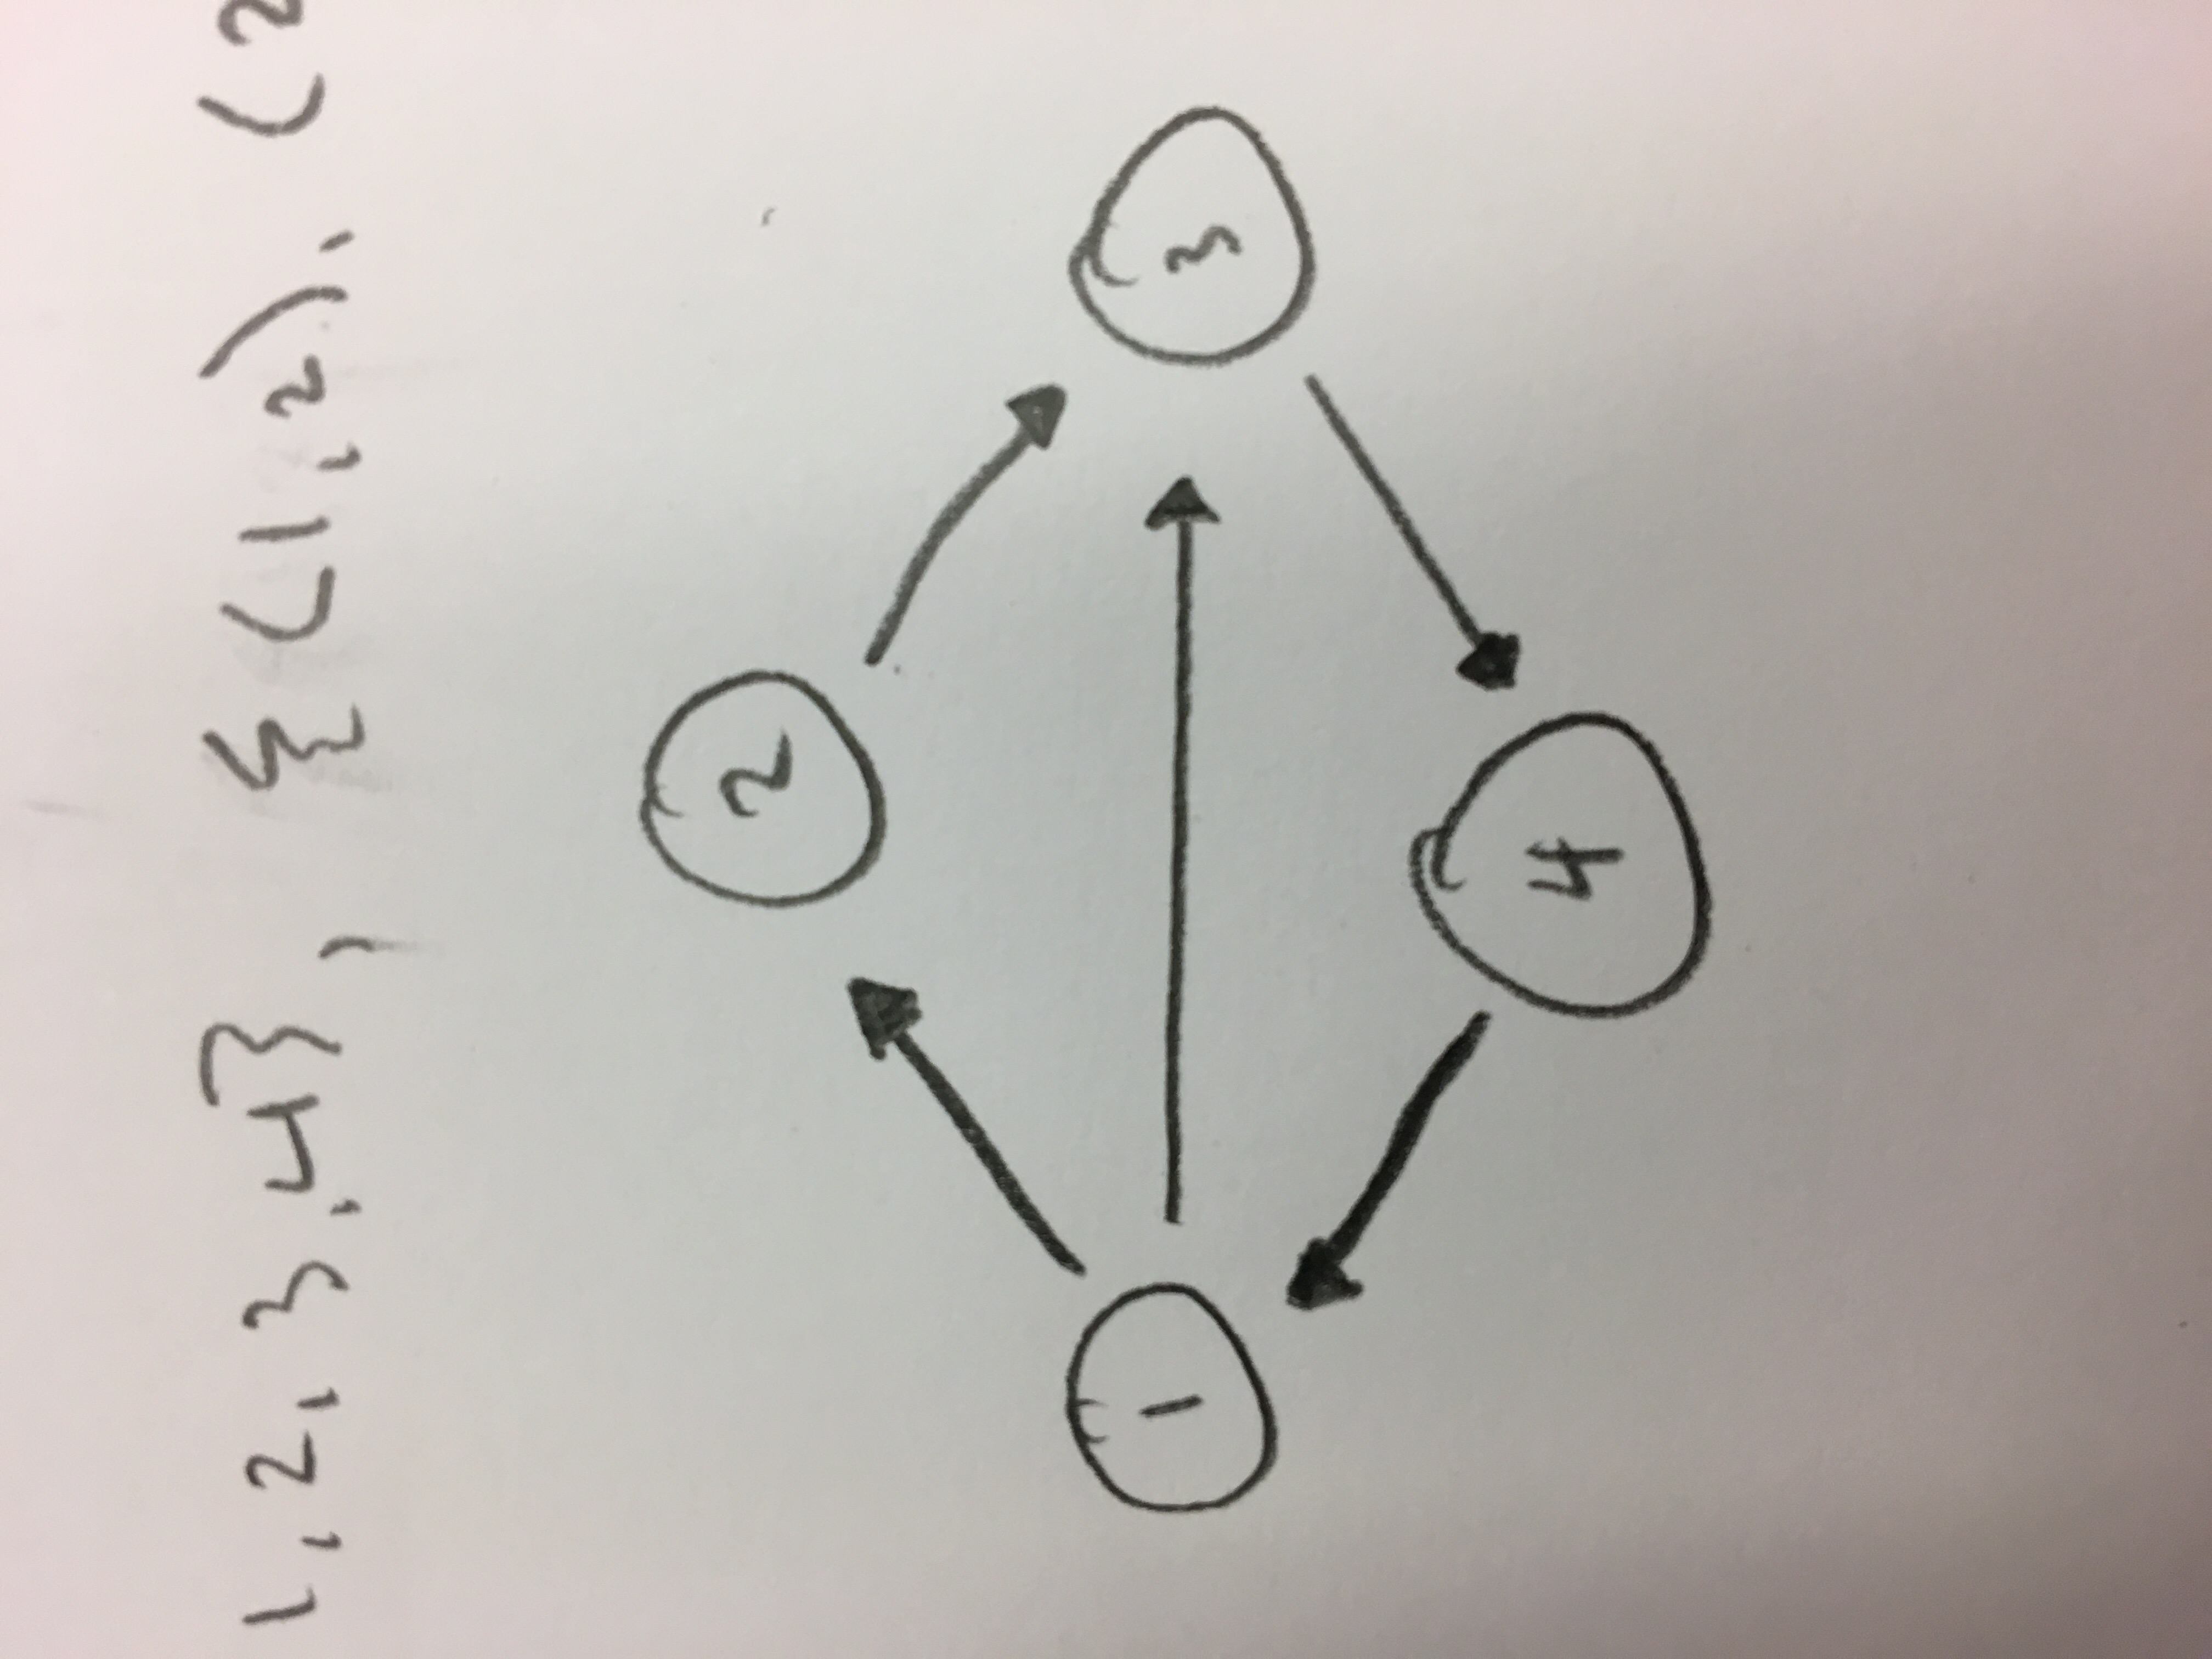 1, 2, 3, 4}, {(1,2), (2
2
1
3
4